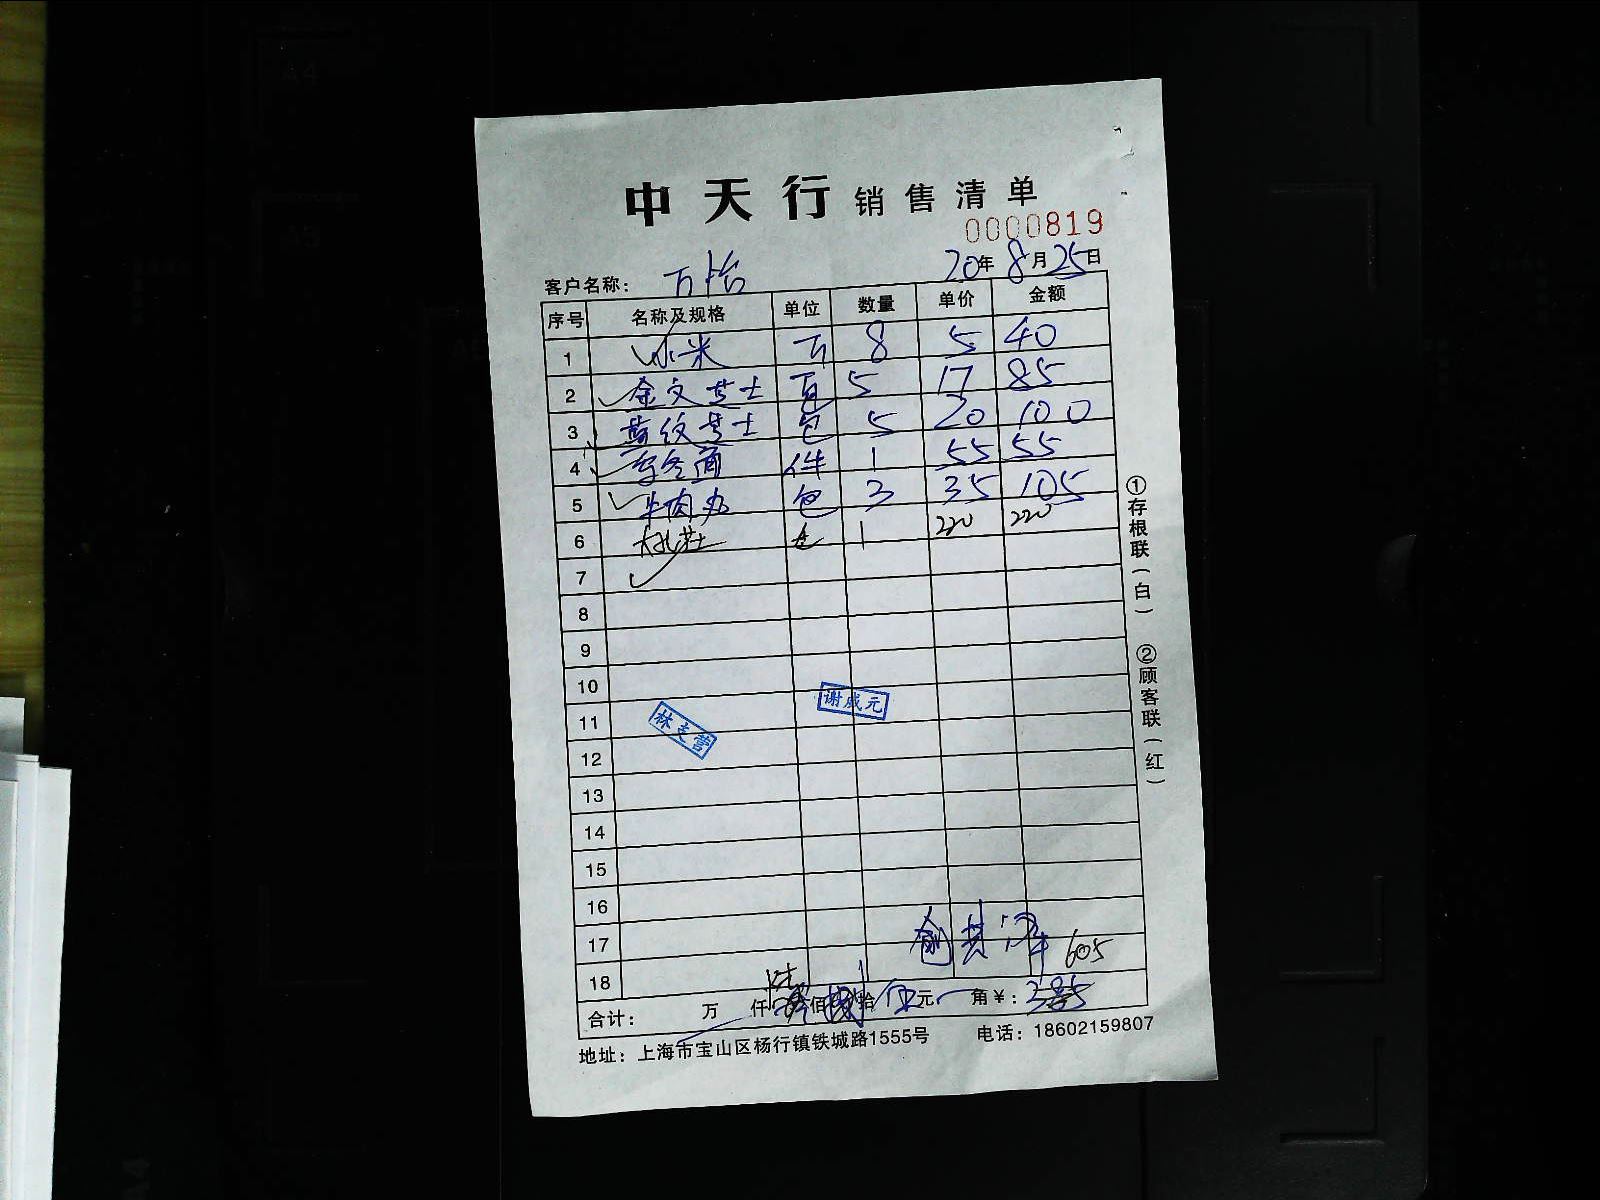 中天行 销售清单
0000819
20年8月25日
客户名称: 万怡
序号 名称及规格 单位 数量 单价 金额
1 小米 斤 8 5 40
2 金文芝士 包 5 17 85
3 蓝纹芝士 包 5 20 100
4 乌冬面 件 1 55 55
5 牛肉丸 包 3 35 105
6 1 220 220
7
8
9
10
11
12
13
14
15
16
17
18
谢成元
林支营
605
合计: 万 仟 佰 拾 伍元 角¥: 385
地址: 上海市宝山区杨行镇铁城路1555号 电话: 18602159807
①存根联(白) ②顾客联(红)